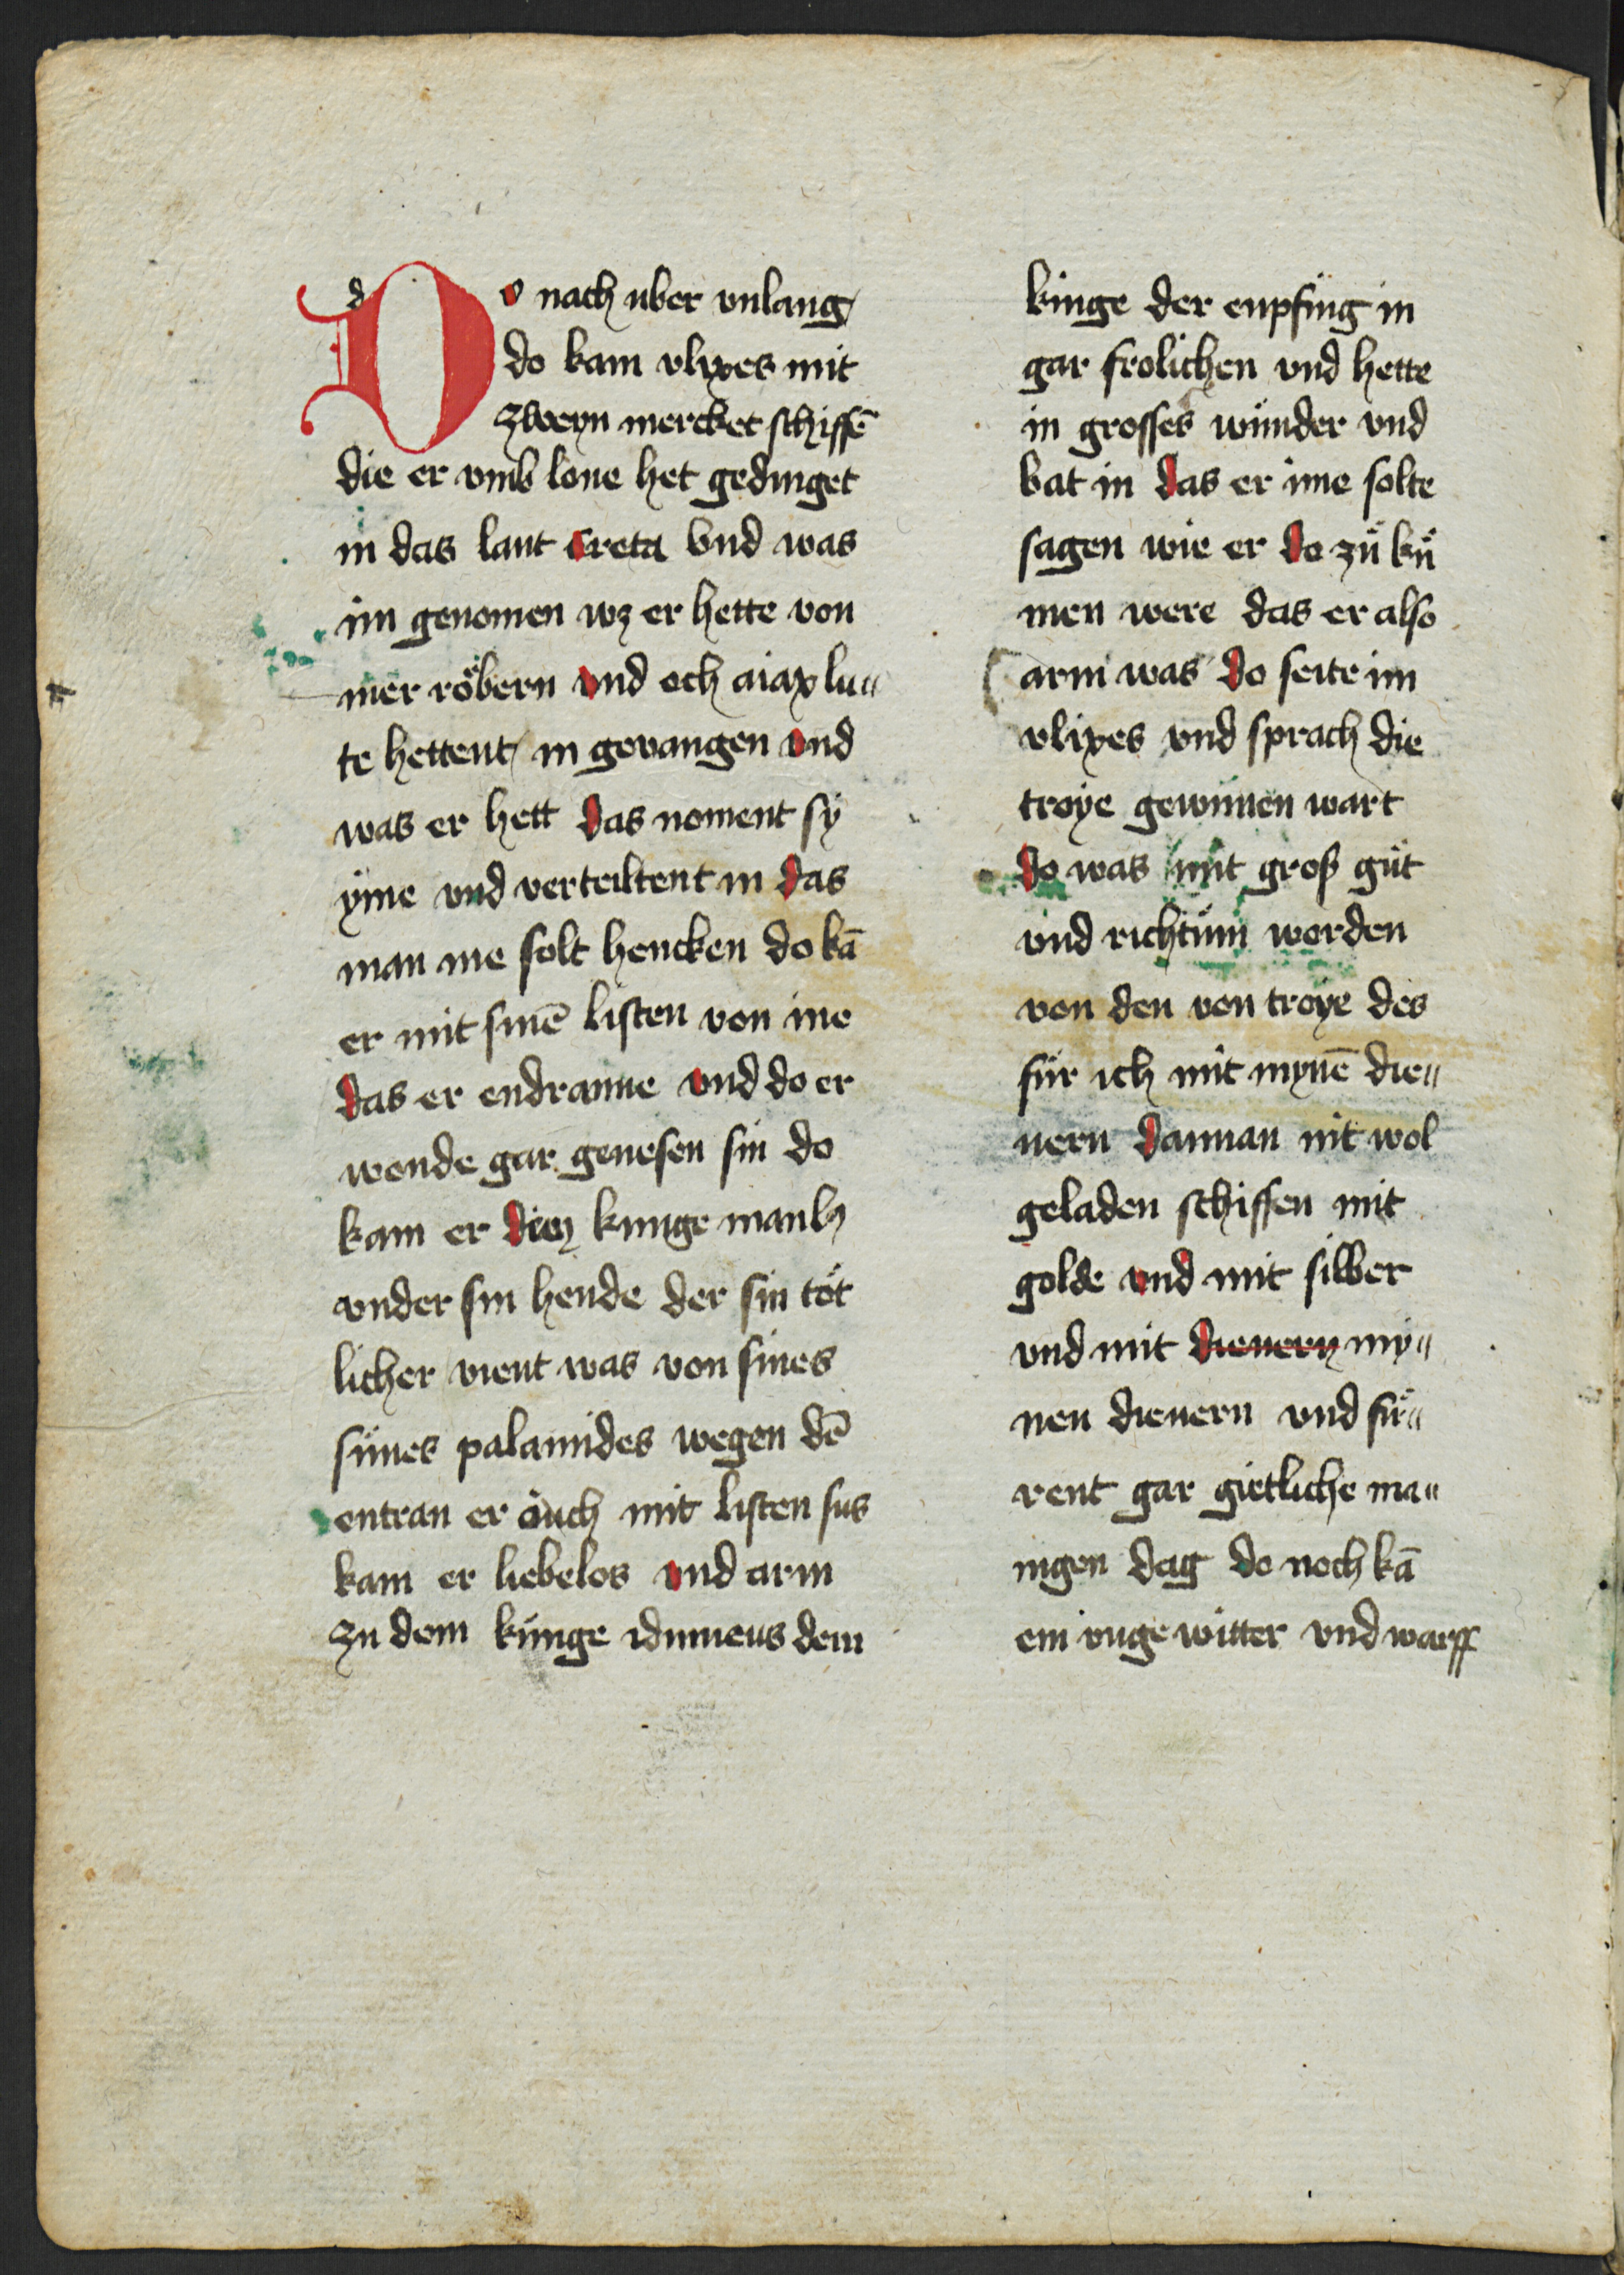 Do nach uber vnlang
do kam vlixes mit
zweyn mercket schiffē
die er vmb lone het gedinget
in das lant Creta vnd was
im genomen wz er hette von
mer röbern vnd och aiax lu„
te hettent in gevangen vnd
was er hett das noment sÿ
ẏme vnd verteiltent in das
man me solt hencken do kā
er mit sinē listen von ine
das er endranne vnd do er
wonde gar genesen sin do
kam er dem kunge manly
vnder sin hende der sin töt
licher vient was von sines
sünes palamides wegen dē
entran er ouch mit listen sus
kam er liebelos vnd arm
zu dem künge idumeus dem
künge der enpfing in
gar frolichen vnd hette
in grosses wunder vnd
bat in das er ime solte
sagen wie er do zů ků
men were das er also
arm was do seite im
vlixes vnd sprach die
troẏe gewunnen wart
do was mit groß gůt
vnd richtům worden
von den von troẏe des
fůr ich mit mynē die„
nern dannan nit wol
geladen schiffen mit
golde vnd mit silber
vnd mit dienern my„
nen dienern vnd fů„
rent gar gietliche ma„
ingen dag do noch kā
ein vngewitter vnd warff